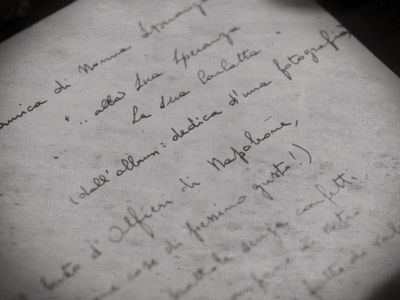 amica di Nonna Speranza
"..alla Sua Speranza
La Sua Carlotta"
(dall'album: dedica d'una fotografia)
busto d'Alfieri di Napoleone,
cose di pessimo gusto!)
scatole senza confetti,
di vetro